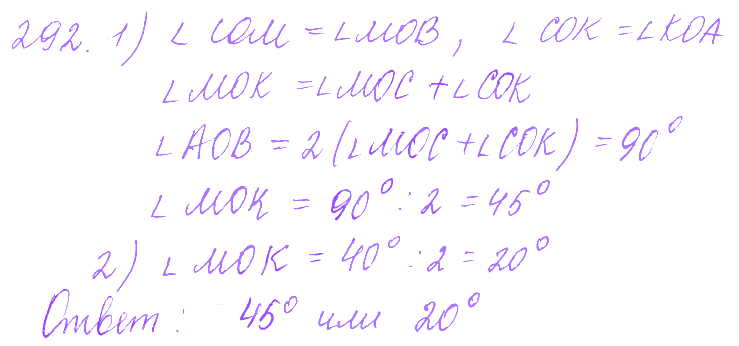 292. 1) ∠ COM = ∠MOB, ∠ COK = ∠KOA
∠ MOK = ∠MOC + ∠COK
∠ AOB = 2(∠MOC + ∠COK) = 90°
∠ MOK = 90° : 2 = 45°
2) ∠ MOK = 40° : 2 = 20°
Ответ: 45° или 20°